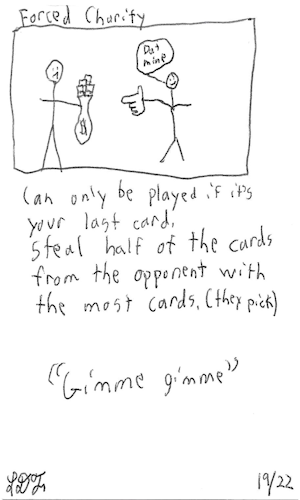 Forced Charity
Dat
mine
$
Can only be played if it's
your last card.
Steal half of the cards
from the opponent with
the most cards. (they pick)
"Gimme gimme"
19/22